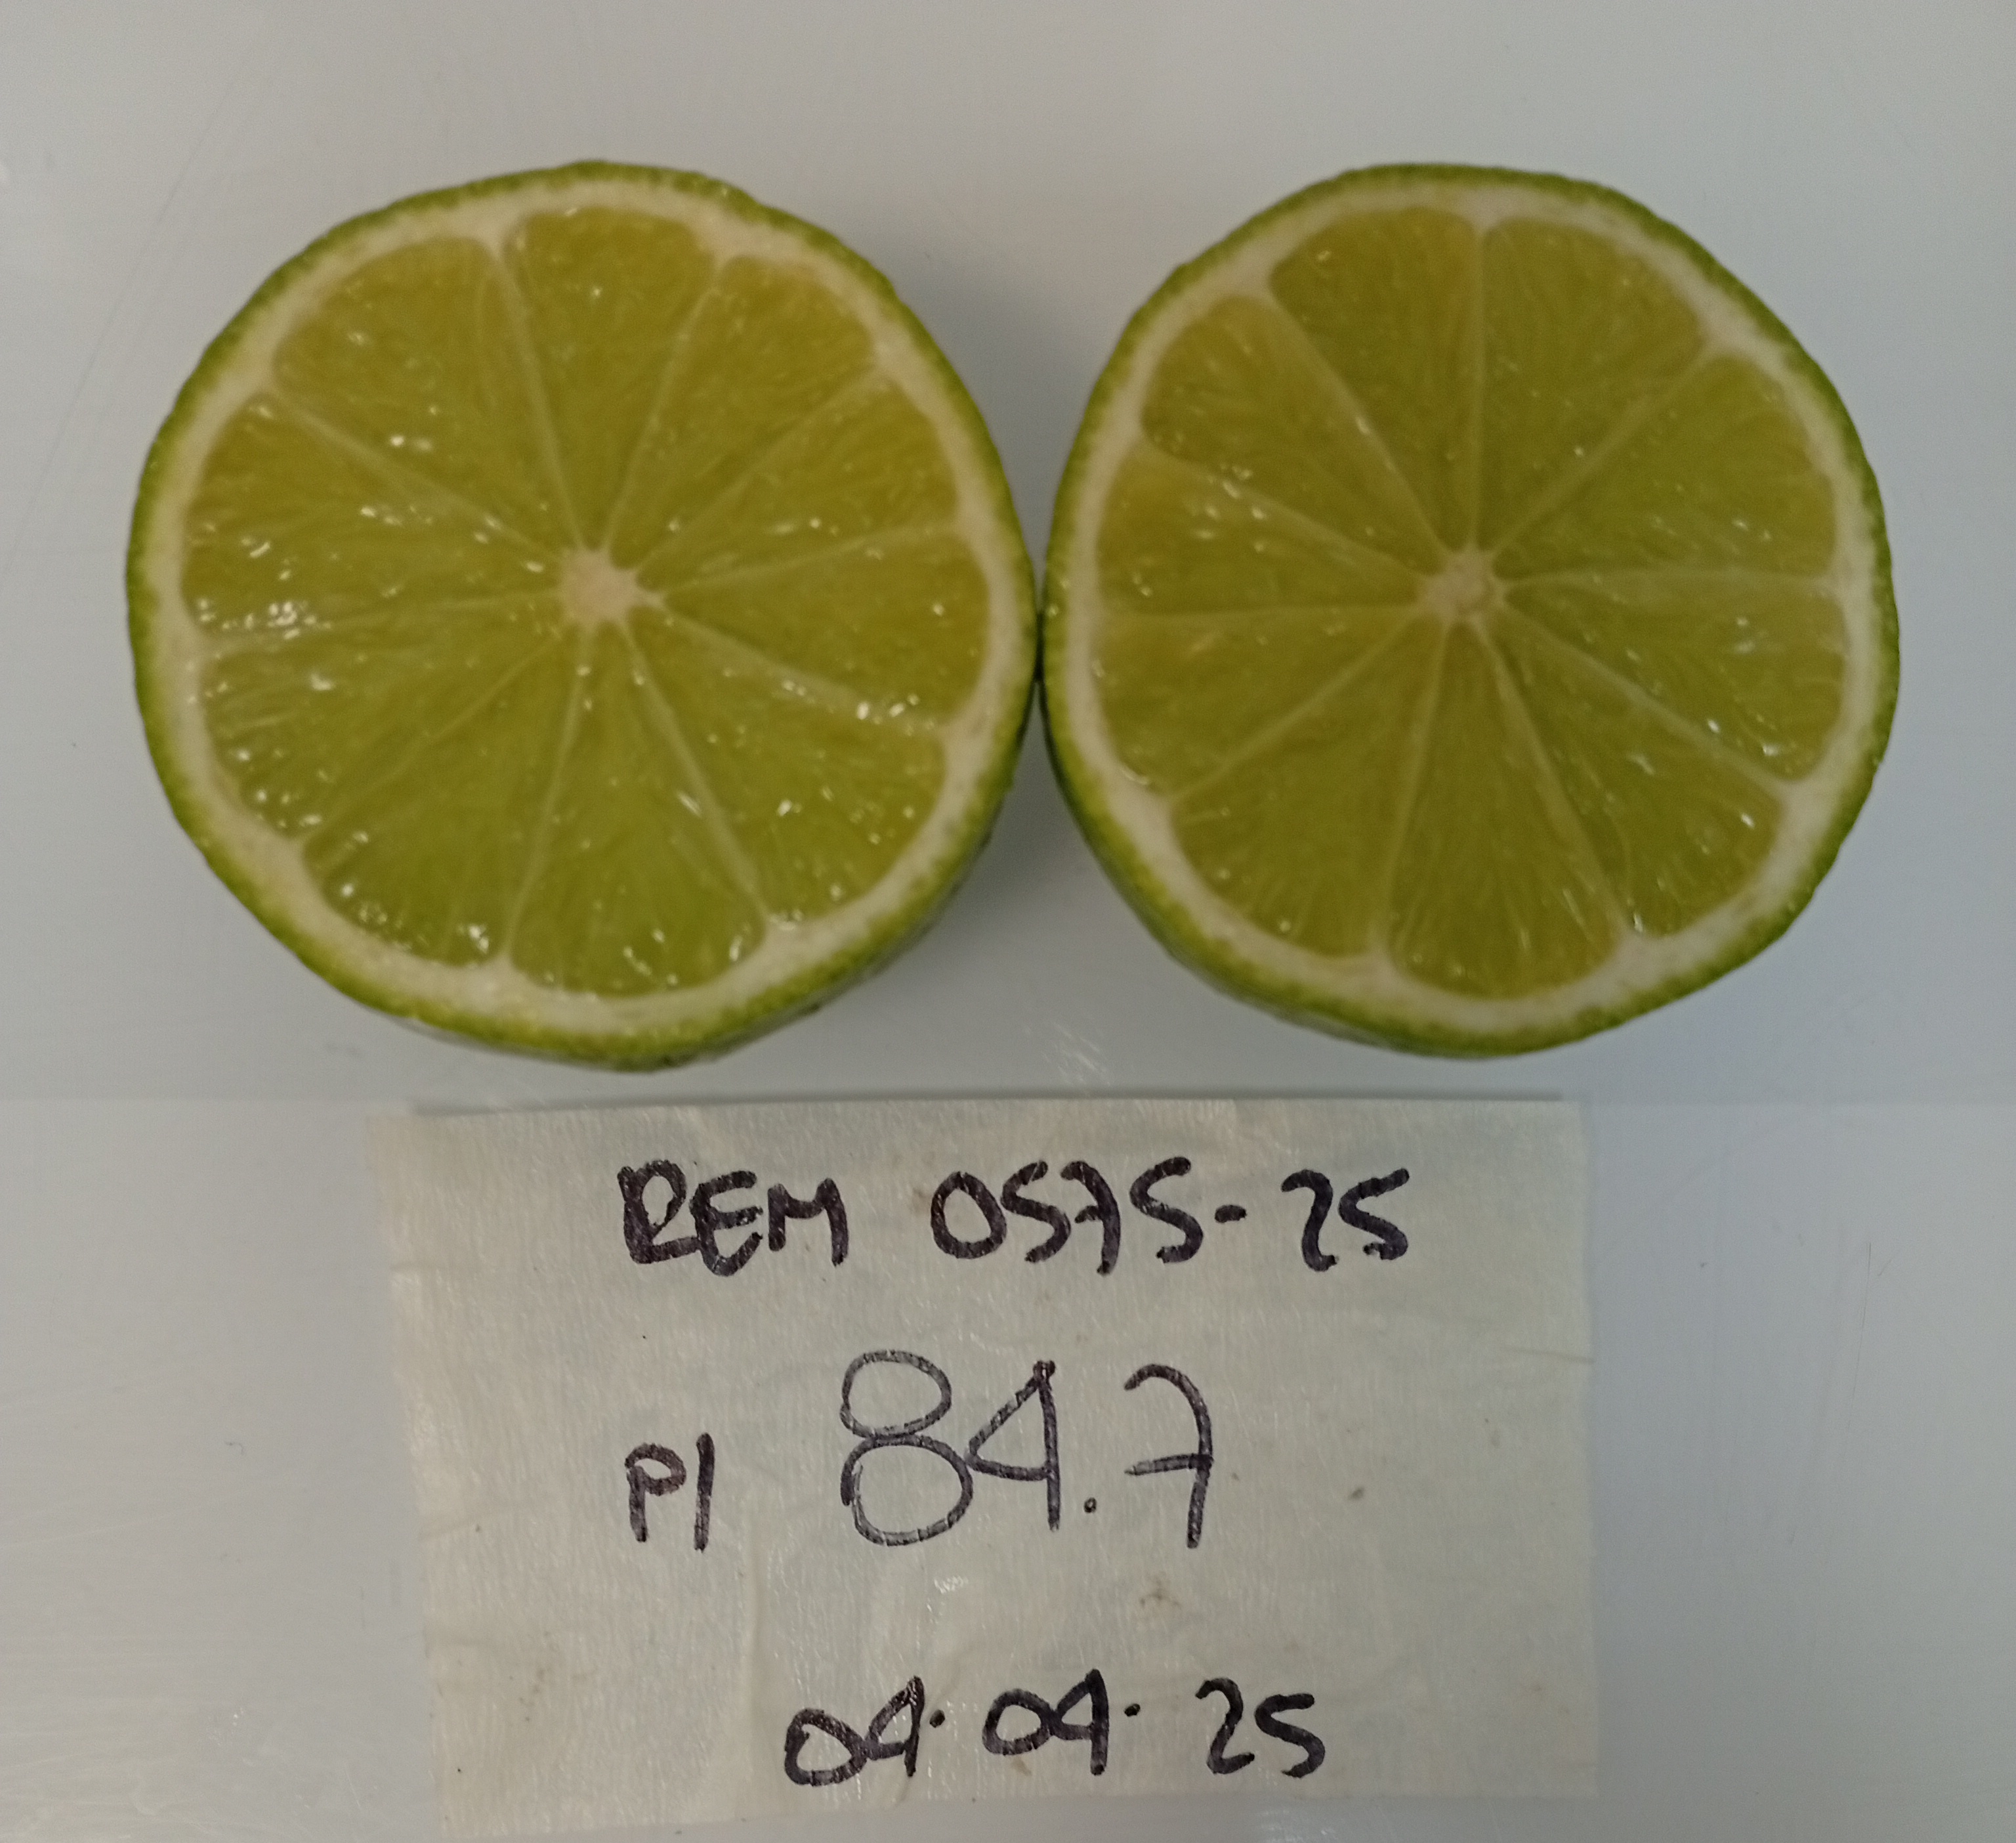 REM 0575-25
P1 84.7
04.04.25